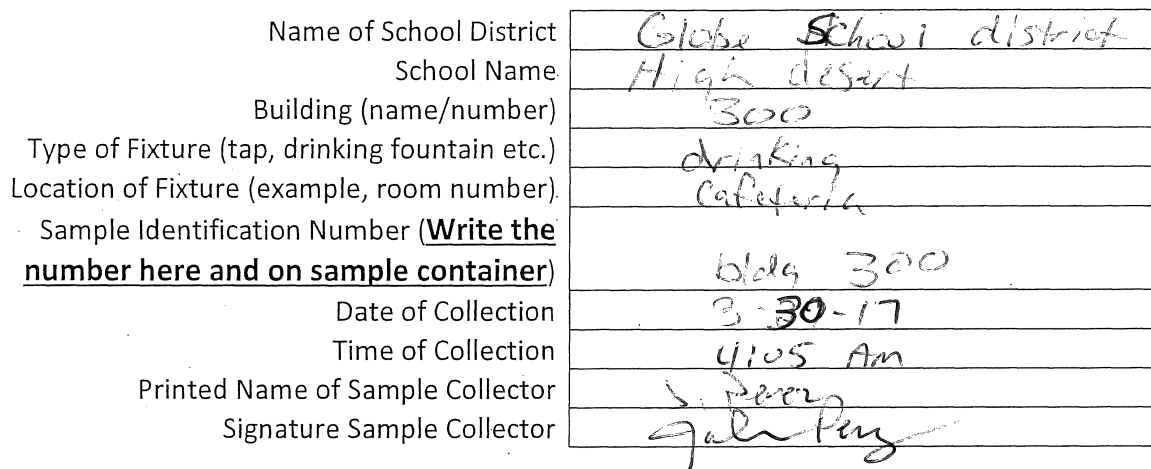 Name of School District Globe School district
School Name High desert
Building (name/number) 300
Type of Fixture (tap, drinking fountain etc.) drinking
Location of Fixture (example, room number) Cafeteria
Sample Identification Number (Write the
number here and on sample container) bldg 300
Date of Collection 3-30-17
Time of Collection 4:05 Am
Printed Name of Sample Collector J. Perez
Signature Sample Collector Perez